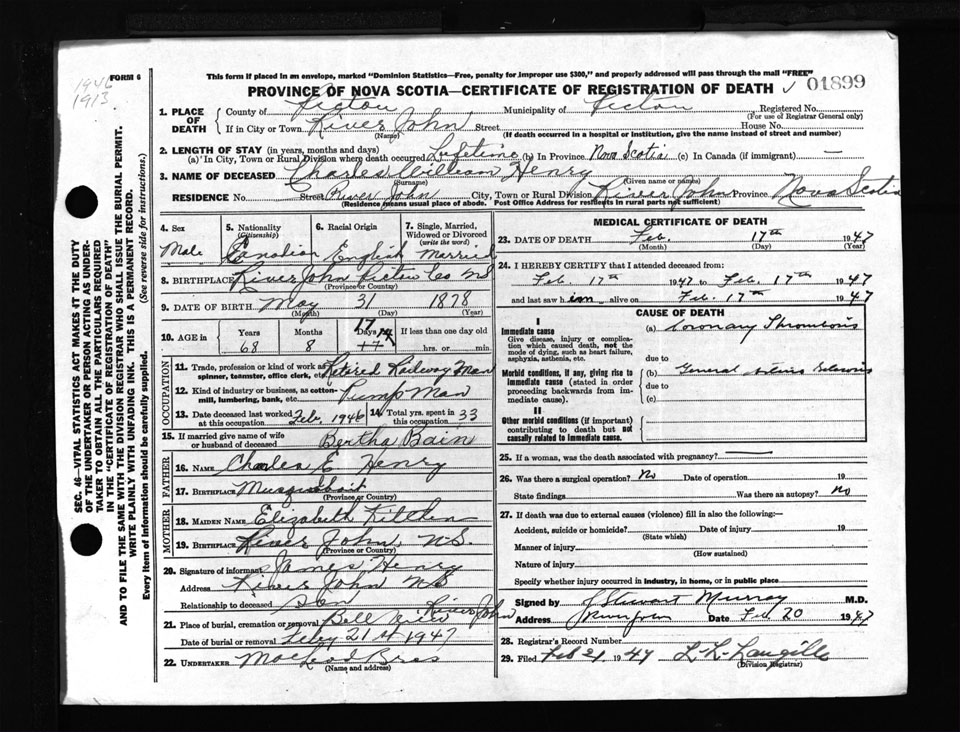 1946
1913
FORM 6
This form if placed in an envelope, marked "Dominion Statistics—Free, penalty for improper use $300," and properly addressed will pass through the mail "FREE"
PROVINCE OF NOVA SCOTIA—CERTIFICATE OF REGISTRATION OF DEATH 01899
1. PLACE OF DEATH County of Pictou Municipality of Pictou Registered No.
(For use of Registrar General only)
If in City or Town River John Street House No.
(Name) (If death occurred in a hospital or institution, give the name instead of street and number)
2. LENGTH OF STAY (in years, months and days)
(a) In City, Town or Rural Division where death occurred Lifetime (b) In Province Nova Scotia (c) In Canada (if immigrant) —
3. NAME OF DECEASED Charles William Henry
(Surname) (Given name or names)
RESIDENCE No. Street River John City, Town or Rural Division River John Province Nova Scotia
(Residence means usual place of abode. Post Office Address for residents in rural parts not sufficient)
4. Sex 5. Nationality (Citizenship) 6. Racial Origin 7. Single, Married, Widowed or Divorced (write the word)
Male Canadian English Married
8. BIRTHPLACE River John Pictou Co NS
(Province or Country)
9. DATE OF BIRTH May 31 1878
(Month) (Day) (Year)
10. AGE in Years Months Days If less than one day old
68 8 17 hrs. or min.
OCCUPATION
11. Trade, profession or kind of work as spinner, teamster, office clerk, etc. Retired Railway Man
12. Kind of industry or business, as cotton-mill, lumbering, bank, etc. Pump Man
13. Date deceased last worked at this occupation Feb. 1946 14. Total yrs. spent in this occupation 33
15. If married give name of wife or husband of deceased Bertha Bain
FATHER
16. NAME Charles E Henry
17. BIRTHPLACE Musquodoboit
(Province or Country)
MOTHER
18. MAIDEN NAME Elizabeth
19. BIRTHPLACE River John, N.S.
(Province or Country)
20. Signature of informant James Henry
Address River John NS
Relationship to deceased Son
21. Place of burial, cremation or removal Bell View River John
Date of burial or removal Feby 21st 1947
22. UNDERTAKER MacLeod Bros
(Name and address)
MEDICAL CERTIFICATE OF DEATH
23. DATE OF DEATH Feb. 17th 1947
(Month) (Day) (Year)
24. I HEREBY CERTIFY that I attended deceased from:
Feb. 17th 1947 to Feb. 17th 1947
and last saw him alive on Feb. 17th 1947
CAUSE OF DEATH
I
Immediate cause (a) Coronary Thrombosis
Give disease, injury or complication which caused death, not the mode of dying, such as heart failure, asphyxia, asthenia, etc.
due to
Morbid conditions, if any, giving rise to immediate cause (stated in order proceeding backwards from immediate cause)
(b) General
due to
(c)
II
Other morbid conditions (if important) contributing to death but not causally related to immediate cause.
25. If a woman, was the death associated with pregnancy? —
26. Was there a surgical operation? No Date of operation 19
State findings Was there an autopsy? No
27. If death was due to external causes (violence) fill in also the following:—
Accident, suicide or homicide? Date of injury 19
(State which)
Manner of injury
(How sustained)
Nature of injury
Specify whether injury occurred in industry, in home, or in public place
Signed by J Stewart Murray M.D.
Address Date Feb 20 1947
28. Registrar's Record Number
29. Filed Feb 21 1947 L. L. Langille
(Division Registrar)
SEC. 46—VITAL STATISTICS ACT MAKES IT THE DUTY
OF THE UNDERTAKER OR PERSON ACTING AS UNDER-
TAKER TO OBTAIN ALL THE PARTICULARS REQUIRED
IN THE "CERTIFICATE OF REGISTRATION OF DEATH"
AND TO FILE THE SAME WITH THE DIVISION REGISTRAR WHO SHALL ISSUE THE BURIAL PERMIT.
WRITE PLAINLY WITH UNFADING INK. THIS IS A PERMANENT RECORD.
Every item of Information should be carefully supplied. (See reverse side for instructions.)